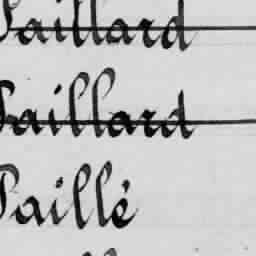 Paillard
Paillard
Paillé